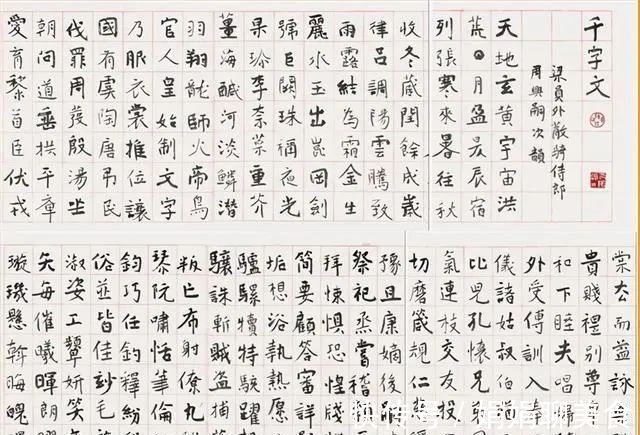 千字文
梁員外散騎侍郎
周興嗣次韻
天地玄黃宇宙洪
荒日月盈昃辰宿
列張寒來暑往秋
收冬藏閏餘成歲
律呂調陽雲騰致
雨露結為霜金生
麗水玉出崑岡劍
號巨闕珠稱夜光
果珍李柰菜重芥
薑海鹹河淡鱗潛
羽翔龍師火帝鳥
官人皇始制文字
乃服衣裳推位讓
國有虞陶唐弔民
伐罪周發殷湯坐
朝問道垂拱平章
愛育黎首臣伏戎
棠去而益詠
貴賤禮別尊
和下睦夫唱
外受傅訓入奉
儀諸姑叔伯
比兒孔懷兄
氣連枝交友投
切磨箴規仁
豫且康嫡後
祭祀烝嘗稽
拜悚懼恐惶牋
簡要顧答審詳
垢想浴執熱愿
驢騾犢特駭躍
驤誅斬賊盜捕
叛亡布射僚丸
琴阮嘯恬筆倫
鈞巧任釣釋紛
俗並皆佳妙毛
淑姿工顰妍笑
矢每催曦暉朗
璇璣懸斡晦魄
快传号／娟娟聊美食